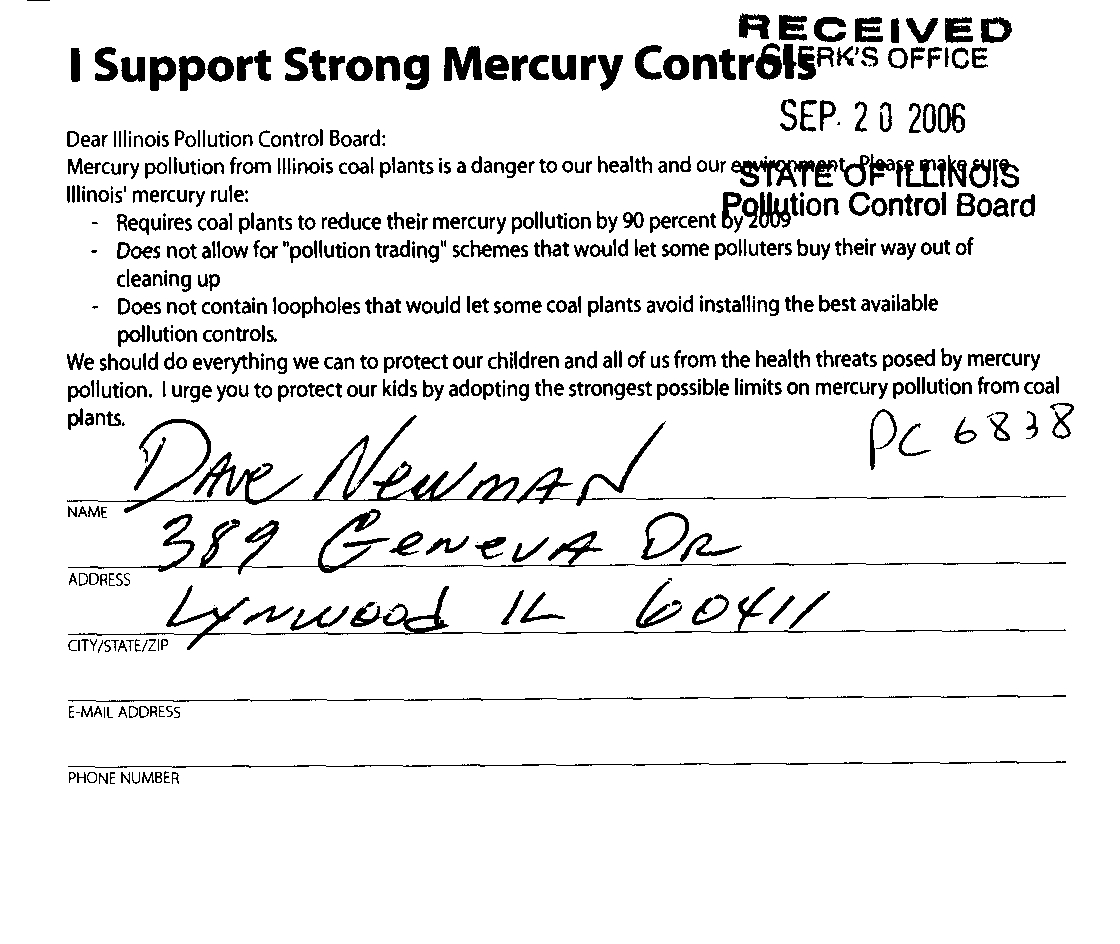 RECEIVED
CLERK'S OFFICE
I Support Strong Mercury Controls
SEP. 20 2006
Dear Illinois Pollution Control Board:
Mercury pollution from Illinois coal plants is a danger to our health and our environment. Please make sure
STATE OF ILLINOIS
Illinois' mercury rule:
Pollution Control Board
- Requires coal plants to reduce their mercury pollution by 90 percent by 2009
- Does not allow for "pollution trading" schemes that would let some polluters buy their way out of
cleaning up
- Does not contain loopholes that would let some coal plants avoid installing the best available
pollution controls.
We should do everything we can to protect our children and all of us from the health threats posed by mercury
pollution. I urge you to protect our kids by adopting the strongest possible limits on mercury pollution from coal
plants.
PC 6838
Dave Newman
NAME
389 Geneva Dr
ADDRESS
Lynwood IL 60411
CITY/STATE/ZIP
E-MAIL ADDRESS
PHONE NUMBER